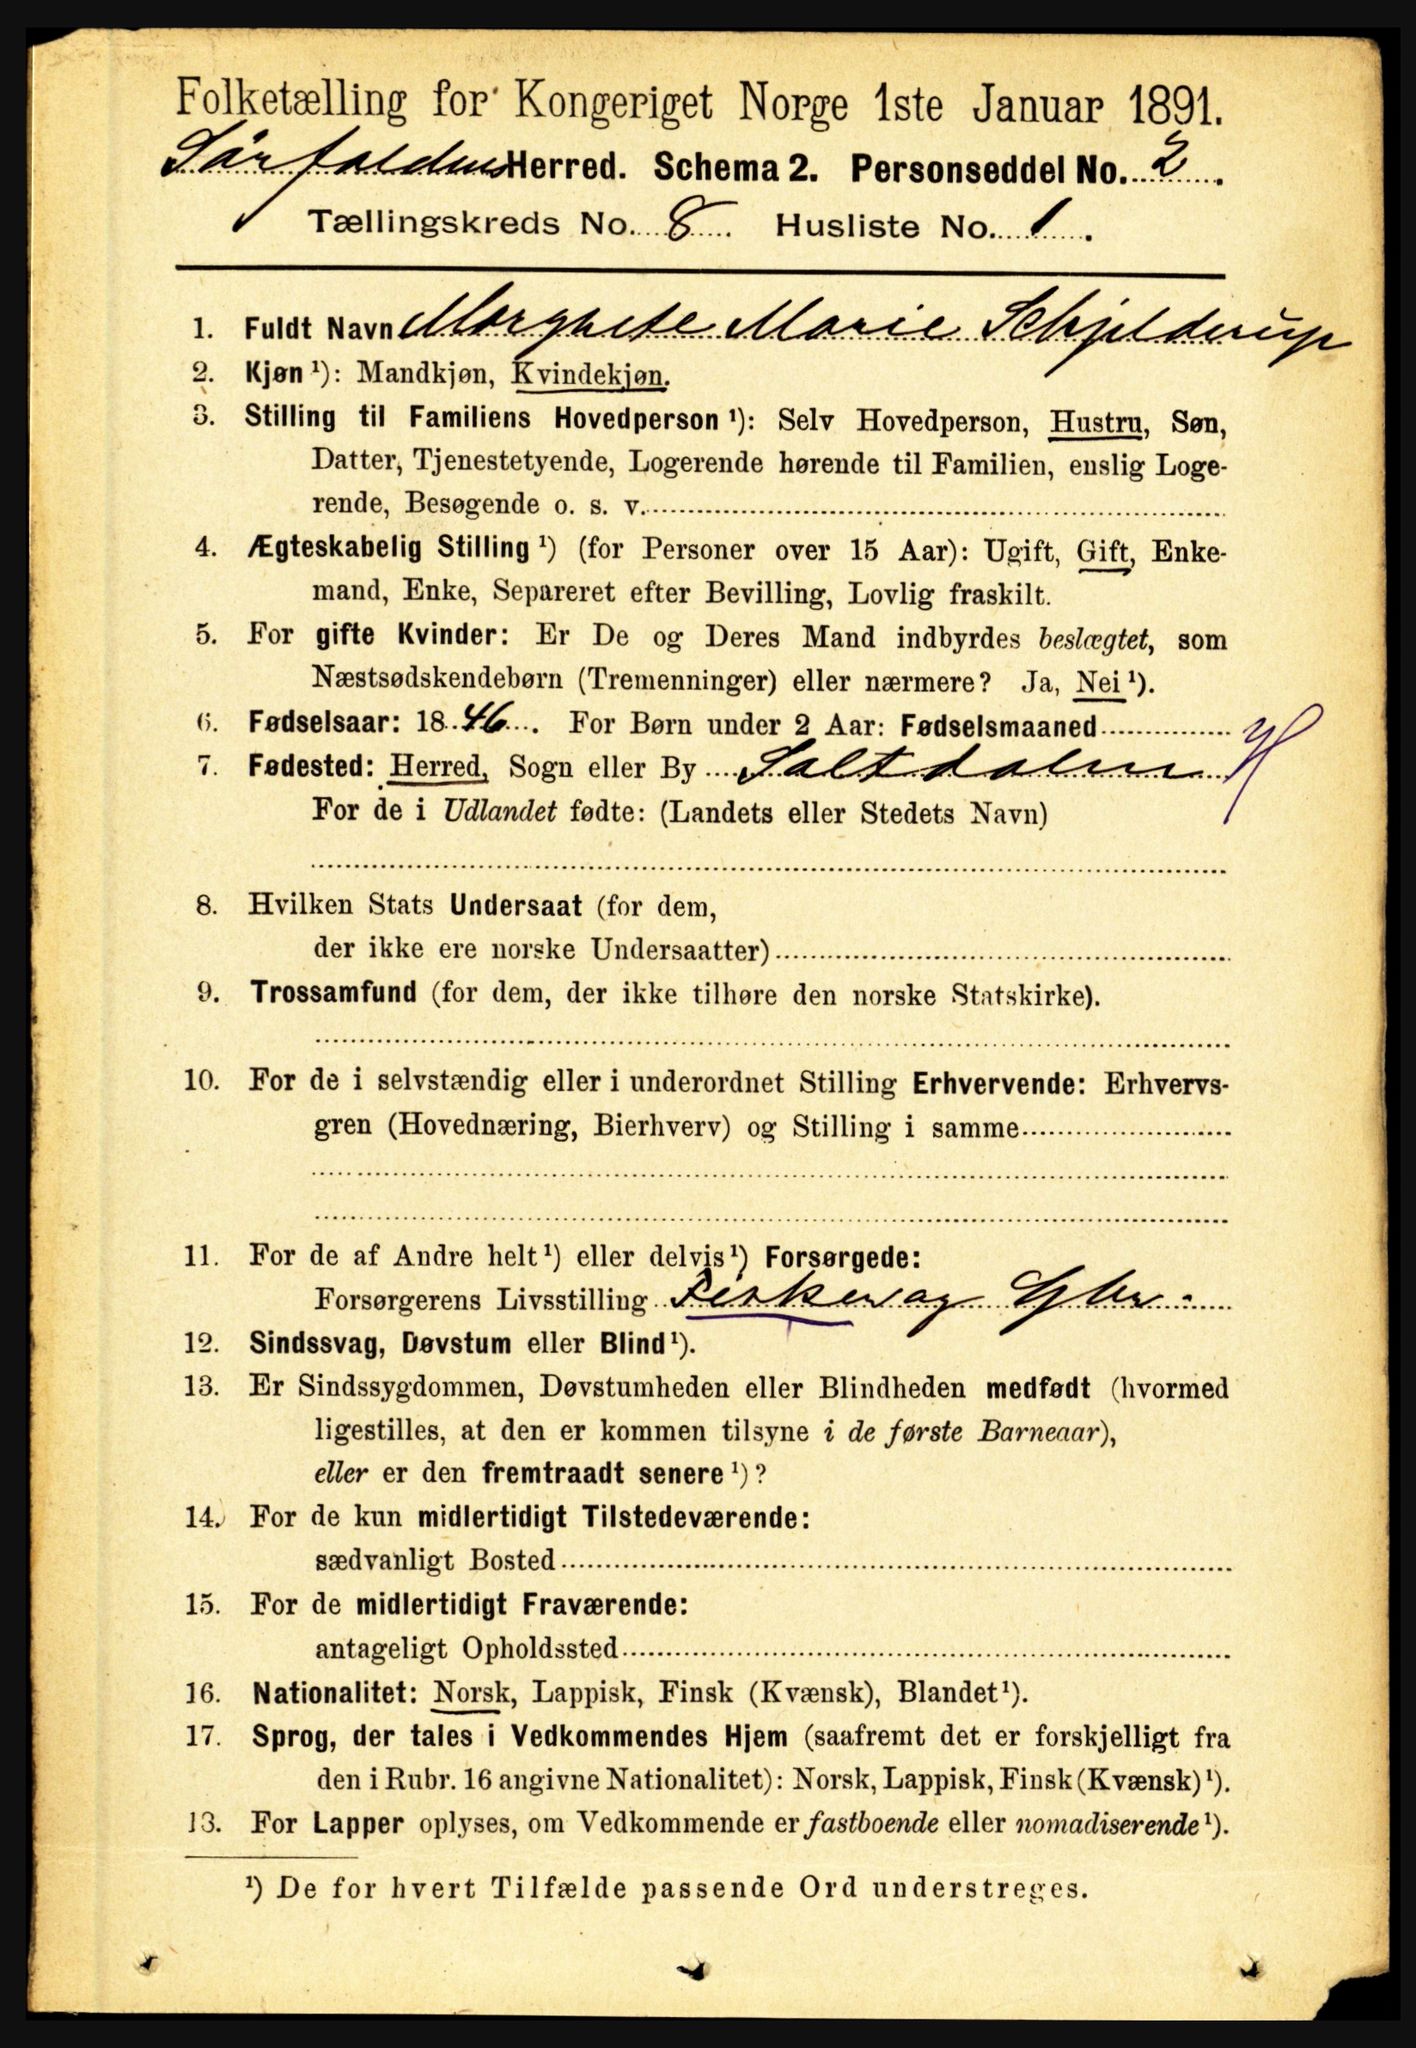 Folketælling for Kongeriget Norge 1ste Januar 1891.
Sørfoldens Herred. Schema 2. Personseddel No. 2.
Tællingskreds No. 8. Husliste No. 1.
1. Fuldt Navn Morgrete Marie Schjelderup
2. Kjøn ¹): Mandkjøn, Kvindekjøn.
3. Stilling til Familiens Hovedperson ¹): Selv Hovedperson, Hustru, Søn,
Datter, Tjenestetyende, Logerende hørende til Familien, enslig Loge-
rende, Besøgende o. s. v.
4. Ægteskabelig Stilling ¹) (for Personer over 15 Aar): Ugift, Gift, Enke-
mand, Enke, Separeret efter Bevilling, Lovlig fraskilt.
5. For gifte Kvinder: Er De og Deres Mand indbyrdes beslægtet, som
Næstsødskendebørn (Tremenninger) eller nærmere? Ja, Nei ¹).
6. Fødselsaar: 1846. For Børn under 2 Aar: Fødselsmaaned
7. Fødested: Herred, Sogn eller By Saltdalen
For de i Udlandet fødte: (Landets eller Stedets Navn)
8. Hvilken Stats Undersaat (for dem,
der ikke ere norske Undersaatter)
9. Trossamfund (for dem, der ikke tilhøre den norske Statskirke).
10. For de i selvstændig eller i underordnet Stilling Erhvervende: Erhvervs-
gren (Hovednæring, Bierhverv) og Stilling i samme
11. For de af Andre helt ¹) eller delvis ¹) Forsørgede:
Forsørgerens Livsstilling Fisker og Gbr.
12. Sindssvag, Døvstum eller Blind ¹).
13. Er Sindssygdommen, Døvstumheden eller Blindheden medfødt (hvormed
ligestilles, at den er kommen tilsyne i de første Barneaar),
eller er den fremtraadt senere ¹)?
14. For de kun midlertidigt Tilstedeværende:
sædvanligt Bosted
15. For de midlertidigt Fraværende:
antageligt Opholdssted
16. Nationalitet: Norsk, Lappisk, Finsk (Kvænsk), Blandet ¹).
17. Sprog, der tales i Vedkommendes Hjem (saafremt det er forskjelligt fra
den i Rubr. 16 angivne Nationalitet): Norsk, Lappisk, Finsk (Kvænsk) ¹).
13. For Lapper oplyses, om Vedkommende er fastboende eller nomadiserende ¹).
¹) De for hvert Tilfælde passende Ord understreges.